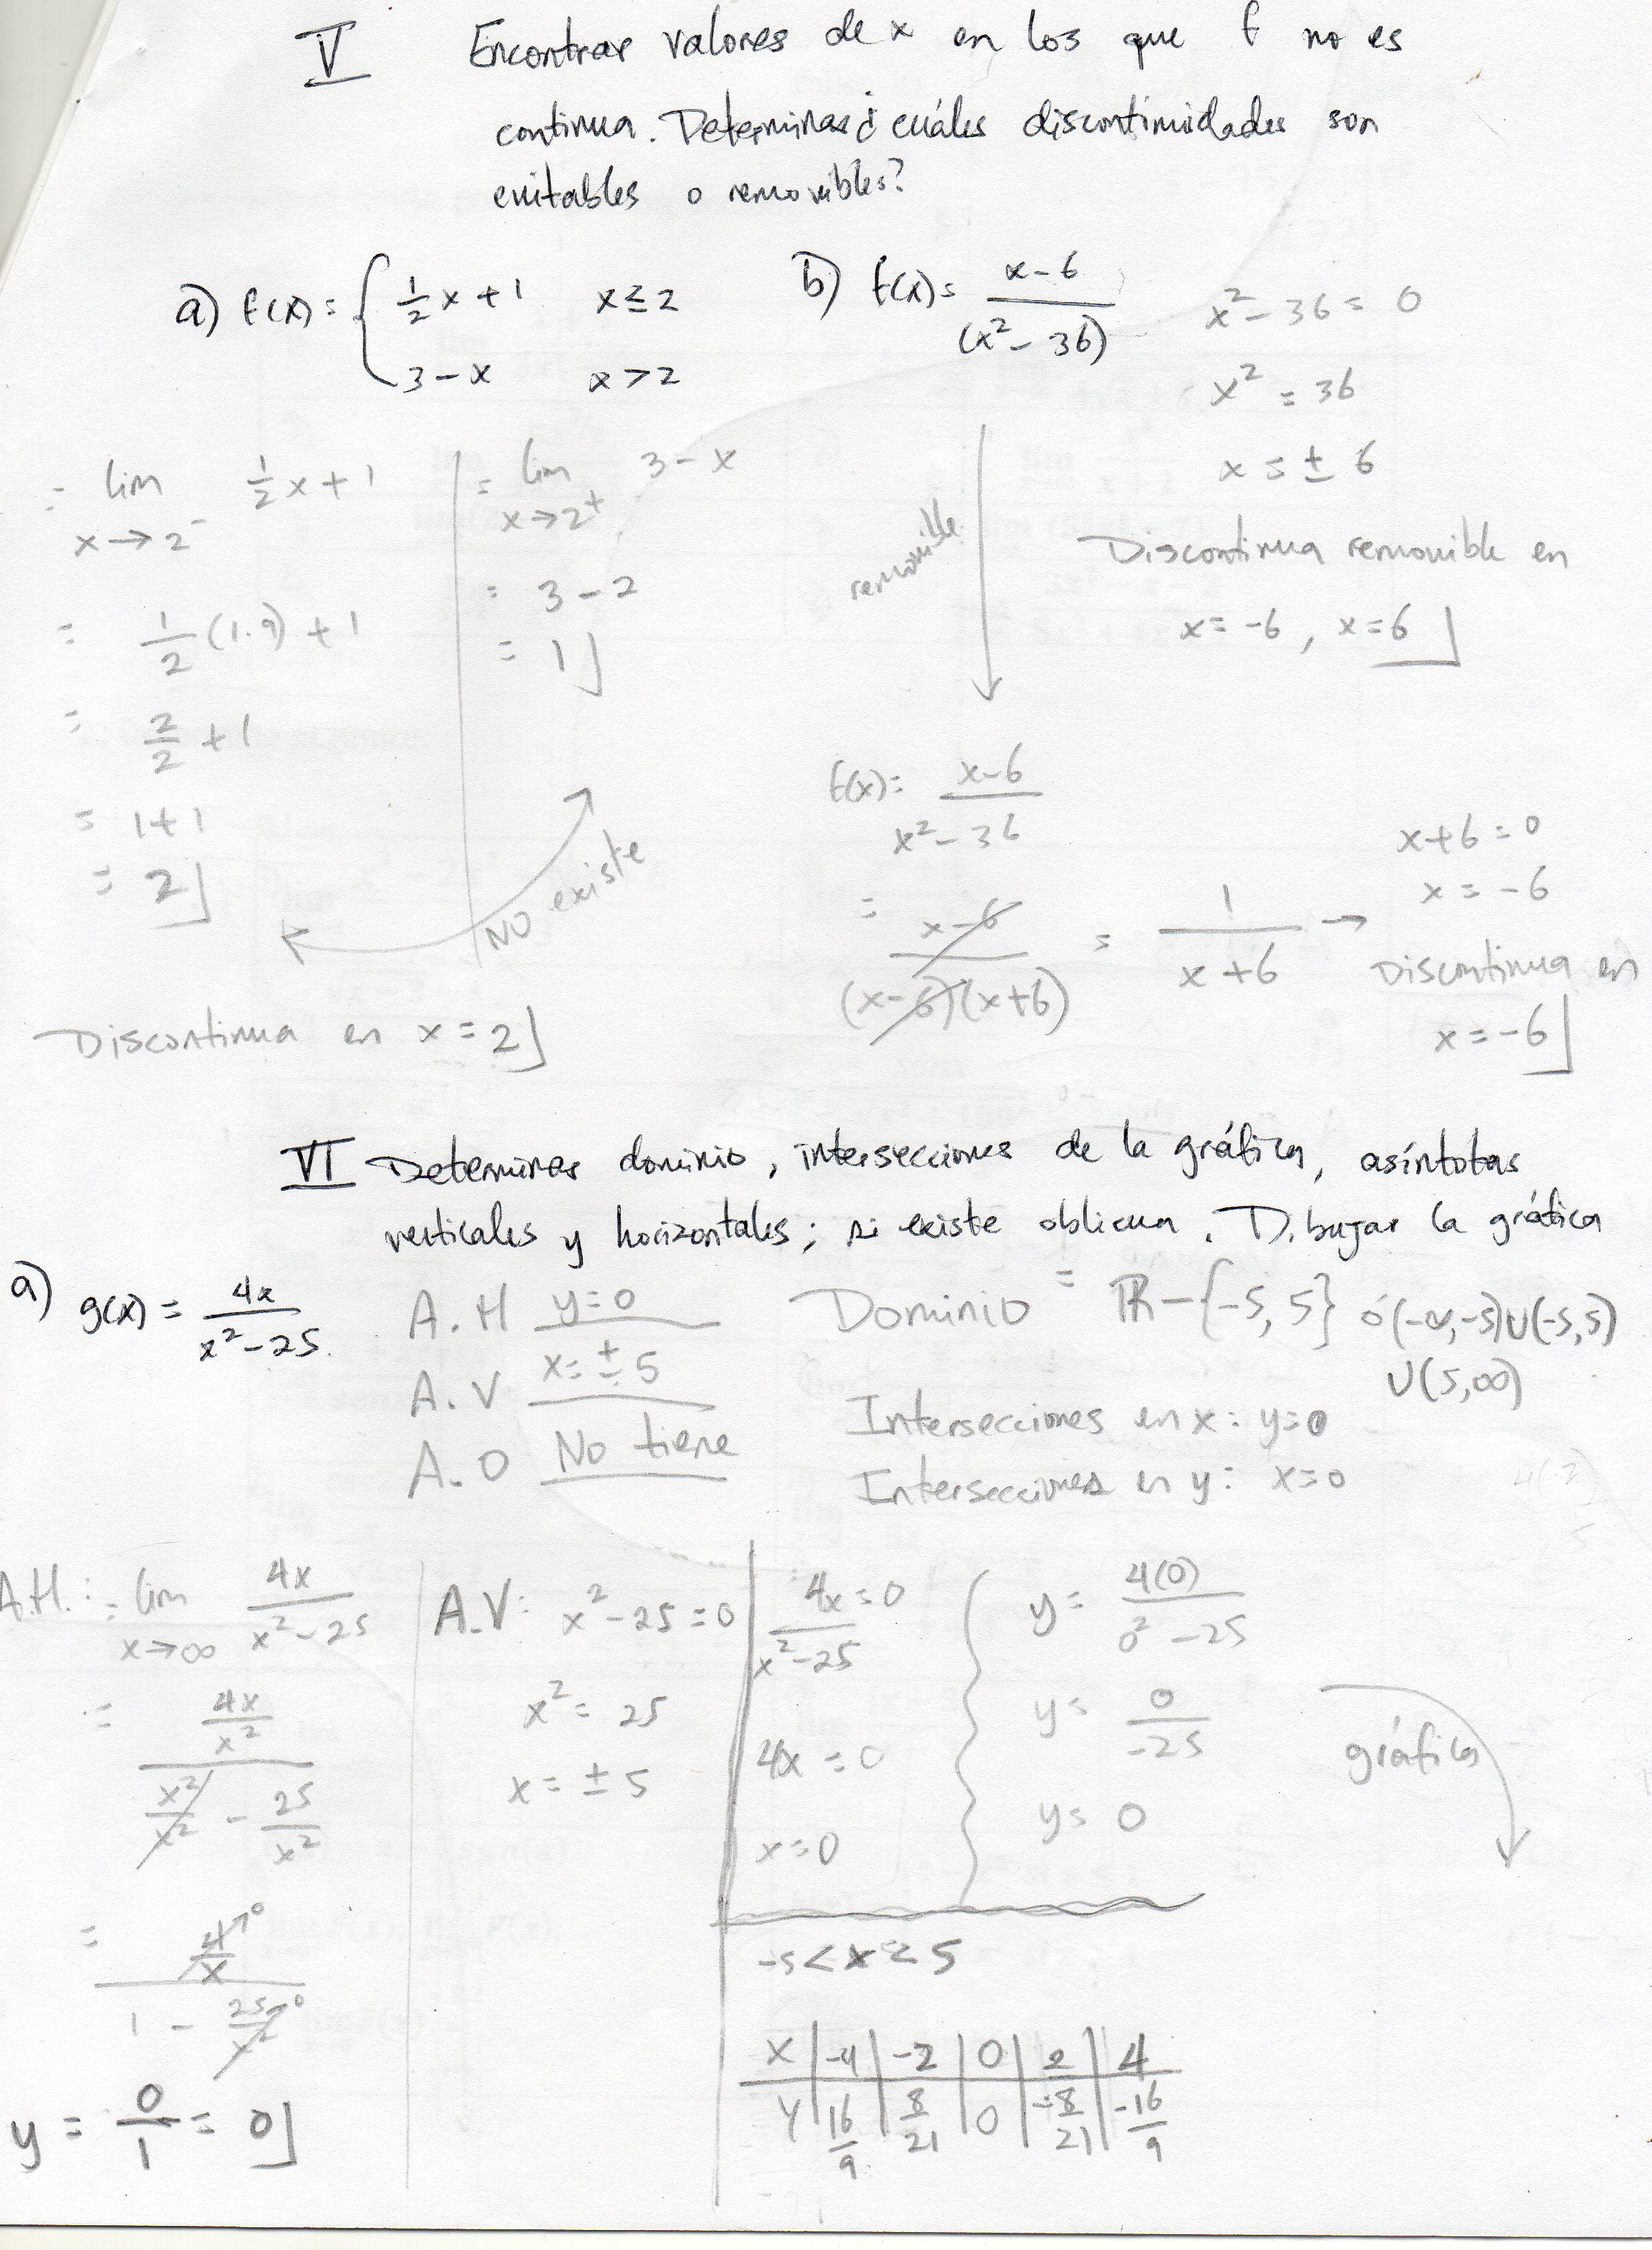 V Encontrar valores de x en los que f no es
continua. Determinar ¿cuáles discontinuidades son
evitables o removibles?
a) f(x) = { 1/2 x + 1 x ≤ 2
3 - x x > 2
= lim x→2⁻ 1/2 x + 1
= 1/2 (1.9) + 1
= 2/2 + 1
= 1 + 1
= 2
= lim x→2⁺ 3 - x
= 3 - 2
= 1
NO existe
Discontinua en x = 2
b) f(x) = x-6 / (x² - 36)
x² - 36 = 0
x² = 36
x = ± 6
Discontinua removible en
x = -6, x = 6
removible
f(x) = x-6 / x² - 36
= x-6 / (x-6)(x+6) = 1 / x+6 →
x+6 = 0
x = -6
Discontinua en
x = -6
VI Determinar dominio, intersecciones de la gráfica, asíntotas
verticales y horizontales; si existe oblicua. Dibujar la gráfica
a) g(x) = 4x / x² - 25
A.H y = 0
A.V x = ± 5
A.O No tiene
Dominio = ℝ - {-5, 5} ó (-∞, -5) U (-5, 5)
U (5, ∞)
Intersecciones en x: y = 0
Intersecciones en y: x = 0
A.H.: = lim x→∞ 4x / x² - 25
= 4x/x² / x²/x² - 25/x²
= 4/x → 0 / 1 - 25/x² → 0
y = 0/1 = 0
A.V: x² - 25 = 0
x² = 25
x = ± 5
4x / x² - 25 = 0
4x = 0
x = 0
y = 4(0) / 0² - 25
y = 0 / -25
y = 0
gráfica
-5 < x < 5
X | -4 | -2 | 0 | 2 | 4
Y | 16/9 | 8/21 | 0 | -8/21 | -16/9